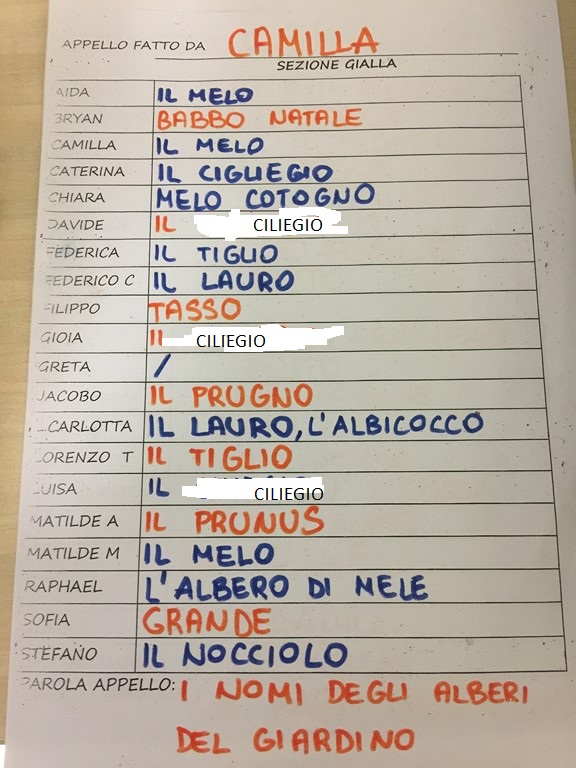 APPELLO FATTO DA CAMILLA
SEZIONE GIALLA
AIDA IL MELO
BRYAN BABBO NATALE
CAMILLA IL MELO
CATERINA IL CIGLIEGIO
CHIARA MELO COTOGNO
DAVIDE IL CILIEGIO
FEDERICA IL TIGLIO
FEDERICO C IL LAURO
FILIPPO TASSO
GIOIA Il CILIEGIO
GRETA /
JACOBO IL PRUGNO
CARLOTTA IL LAURO, L'ALBICOCCO
LORENZO T IL TIGLIO
LUISA IL CILIEGIO
MATILDE A IL PRUNUS
MATILDE M IL MELO
RAPHAEL L'ALBERO DI MELE
SOFIA GRANDE
STEFANO IL NOCCIOLO
PAROLA APPELLO: I NOMI DEGLI ALBERI
DEL GIARDINO